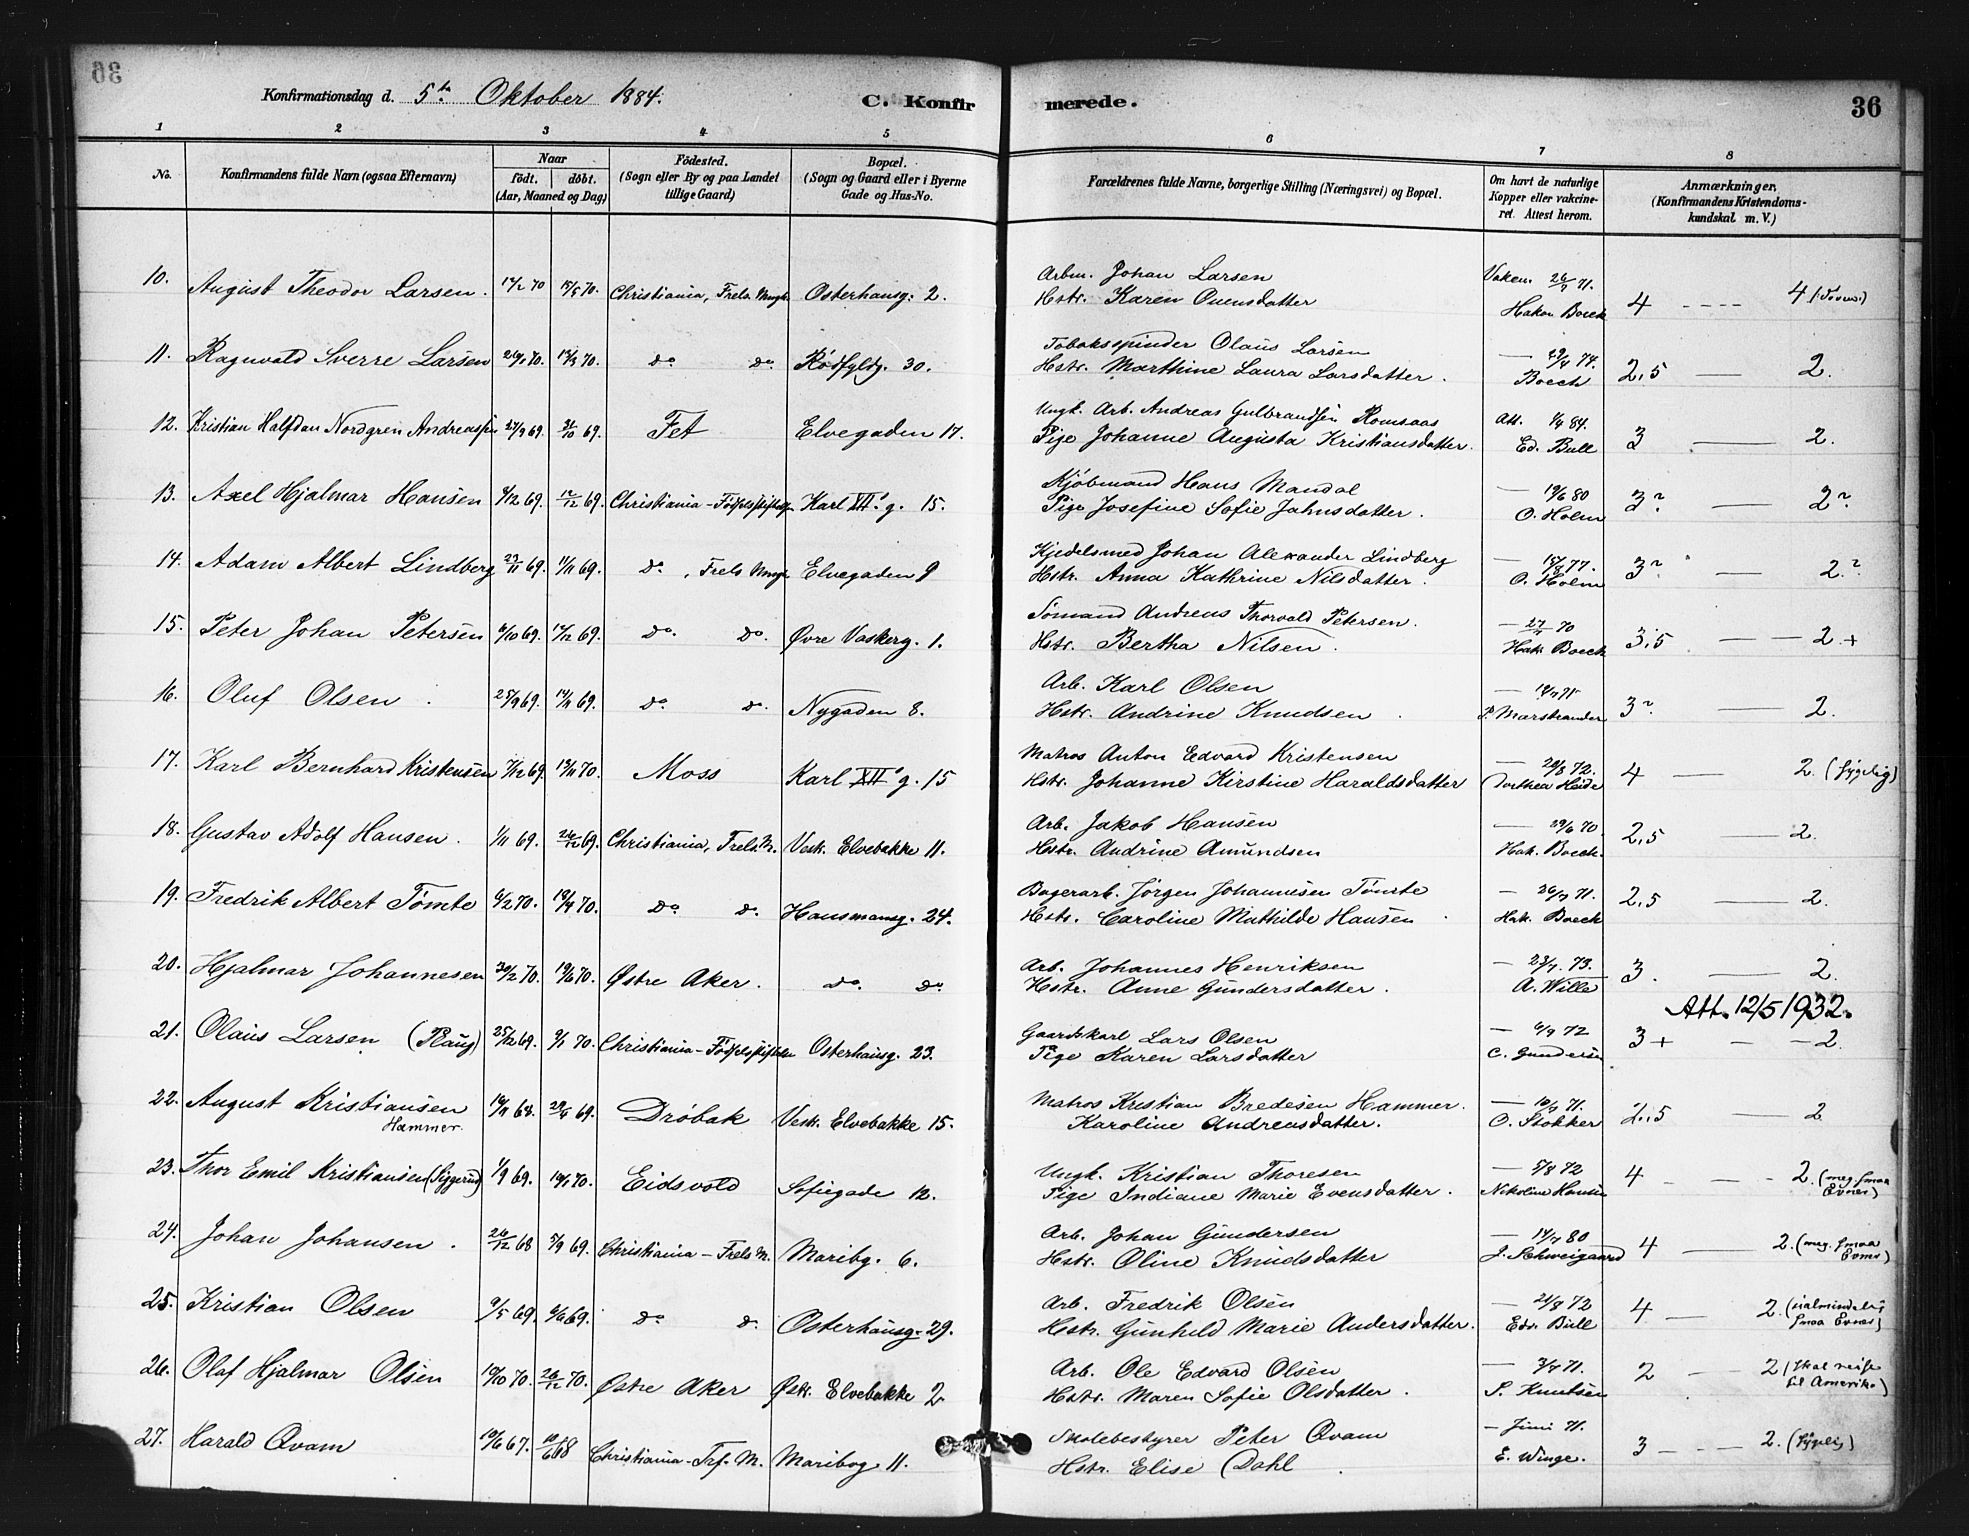 36
Konfirmationsdag d. 5te Oktober 1884.
C. Konfirmerede.
36
1 2 3 4 5 6 7 8
No.
Konfirmandens fulde Navn (ogsaa Efternavn)
Naar
født. døbt.
(Aar, Maaned og Dag)
Födested.
(Sogn eller By og paa Landet
tillige Gaard)
Bopæl.
(Sogn og Gaard eller i Byerne
Gade og Hus-No.
Forældrenes fulde Navne, borgerlige Stilling (Næringsvei) og Bopæl.
Om havt de naturlige
Kopper eller vakcine-
ret. Attest herom.
Anmærkninger,
(Konfirmandens Kristendoms-
kundskal m. V.)
10. August Theodor Larsen. Christiania, Frels. Osterhausg. 2.
Arbm. Johan Larsen
Hstr. Karen Ovensdatter
Vakcn. 71.
Hakon Boeck
4 - - - - 4
11. Ragnvald Sverre Larsen do do. Rödfyldg. 30.
Tobaksspinder Olaus Larsen
Hstr. Marthine Laura Larsdatter.
— 74.
Boeck
2,5 — 2.
12. Kristian Halfdan Nordgren Andreassen 27/9 69. 31/10 69. Fet Elvegaden 17.
Ungk. Arb. Andreas Gulbrandsen Romsaas
Pige Johanne Augusta Kristiansdatter.
Att. 84.
Ed. Bull
3 — 2.
13. Axel Hjalmar Hansen 69. 12/12 69. Christiania - Födselsstiftelsen Karl XII's g. 15.
Kjöbmand Hans Mandal
Pige Josefine Sofie Jahnsdatter.
— 19/6 80
O. Holm
3? — 2?
14. Adam Albert Lindberg 69. 69. do, Frels Elvegaden 9
Kjedelsmed Johan Alexander Lindberg
Hstr. Anna Kathrine Nilsdatter.
— 77.
O. Holm
3? — 2.?
15. Peter Johan Petersen 69. 69. do. do. Øvre Vaskerg. 1.
Sömand Andreas Thorvald Petersen.
Hstr. Bertha Nilsen.
— 27/7 70
Hak. Boeck
3,5 — — 2.+
16. Oluf Olsen 25/9 69. 69. do do. Nygaden 8.
Arb. Karl Olsen
Hstr. Andrine Knudsen.
— 71
P. Marstrander
3? — 2.
17. Karl Bernhard Kristensen 7/12 69. 70. Moss Karl XII's g. 15
Matros Anton Edvard Kristensen
Hstr. Johanne Kirstine Haraldsdatter
— 20/8 72.
Dorthea Heide
4 — 2. (sygelig)
18. Gustav Adolf Hansen. 1/11 69. 26/12 69. Christiania, Frels. M. Vest. Elvebakke 11.
Arb. Jakob Hansen
Hstr. Andrine Amundsen
— 29/6 70.
Hak. Boeck.
2,5 — 2.
19. Fredrik Albert Tömte 6/2 70. 70. do do. Hausmansg. 24.
Bagerarb. Jörgen Johannesen Tömte
Hstr. Caroline Mathilde Hansen
— 26/7 71.
Hak. Boeck
2,5 — 2.
20. Hjalmar Johannesen 70. 19/6 70. Østre Aker. do. do
Arb. Johannes Henriksen
Hstr. Anne Gundersdatter.
— 23/7. 73.
A. Wille
3. — 2.
Att. 12/5 1932.
21. Olaus Larsen (Plaug) 25/12 69. 9/1 70. Christiania - Födselsstiftelsen Osterhausg. 23.
Gaardskarl Lars Olsen
Pige Karen Larsdatter
— 6/9 72
C. Gundersen
3+ — — 2.
22. August Kristiansen
Hammer. 69. Dröbak Vest. Elvebakke 15.
Matros Kristian Bredesen Hammer.
Karoline Andreasdatter.
— 71.
O. Stokker
2,5 — 2
23. Thor Emil Kristiansen (Siggerud) 1/9 69. 70. Eidsvold Sofiegade 12.
Ungk. Kristian Thoresen
Pige Indiane Marie Evensdatter.
— 5/8 72
Nikoline Hansen
4 - - - 2. (meg. smaa
Evner)
24. Johan Johansen. 26/12 68 5/9 69. Christiania - Frels M. Maribg. 6.
Arb. Johan Gundersen
Hstr. Oline Knudsdatter
— 80
J. Schweigaard
4 — 2. (meg. smaa
Evner)
25. Kristian Olsen 9/5 69. 69. do do. Osterhausg. 29.
Arb. Fredrik Olsen
Hstr. Gunhild Marie Andersdatter.
— 21/8 72
Edv. Bull
4 — 2. (ualmindelig
smaa Evner)
26. Olaf Hjalmar Olsen 19/10 70. 26/12 70. Østre Aker Östr. Elvebakke 2
Arb. Ole Edvard Olsen
Hstr. Maren Sofie Olsdatter.
— 71.
S. Knutsen
2 — 2 (skal reise
til Amerika)
27. Harald Qvam 19/6 67. 68 Christiania - Trf. M. Maribog. 11.
Skolebestyrer Peter Qvam
Hstr. Elise Dahl
— Juni 71.
E. Winge.
3 — - - 2. (sygelig)